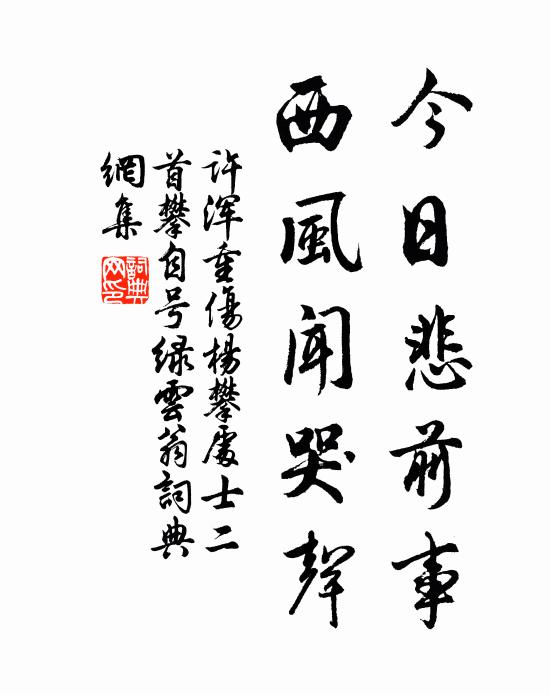 今日悲前事
西風聞哭聲
许浑重傷楊攀處士二
首攀自号绿雲翁詞典
網集
詞典網印